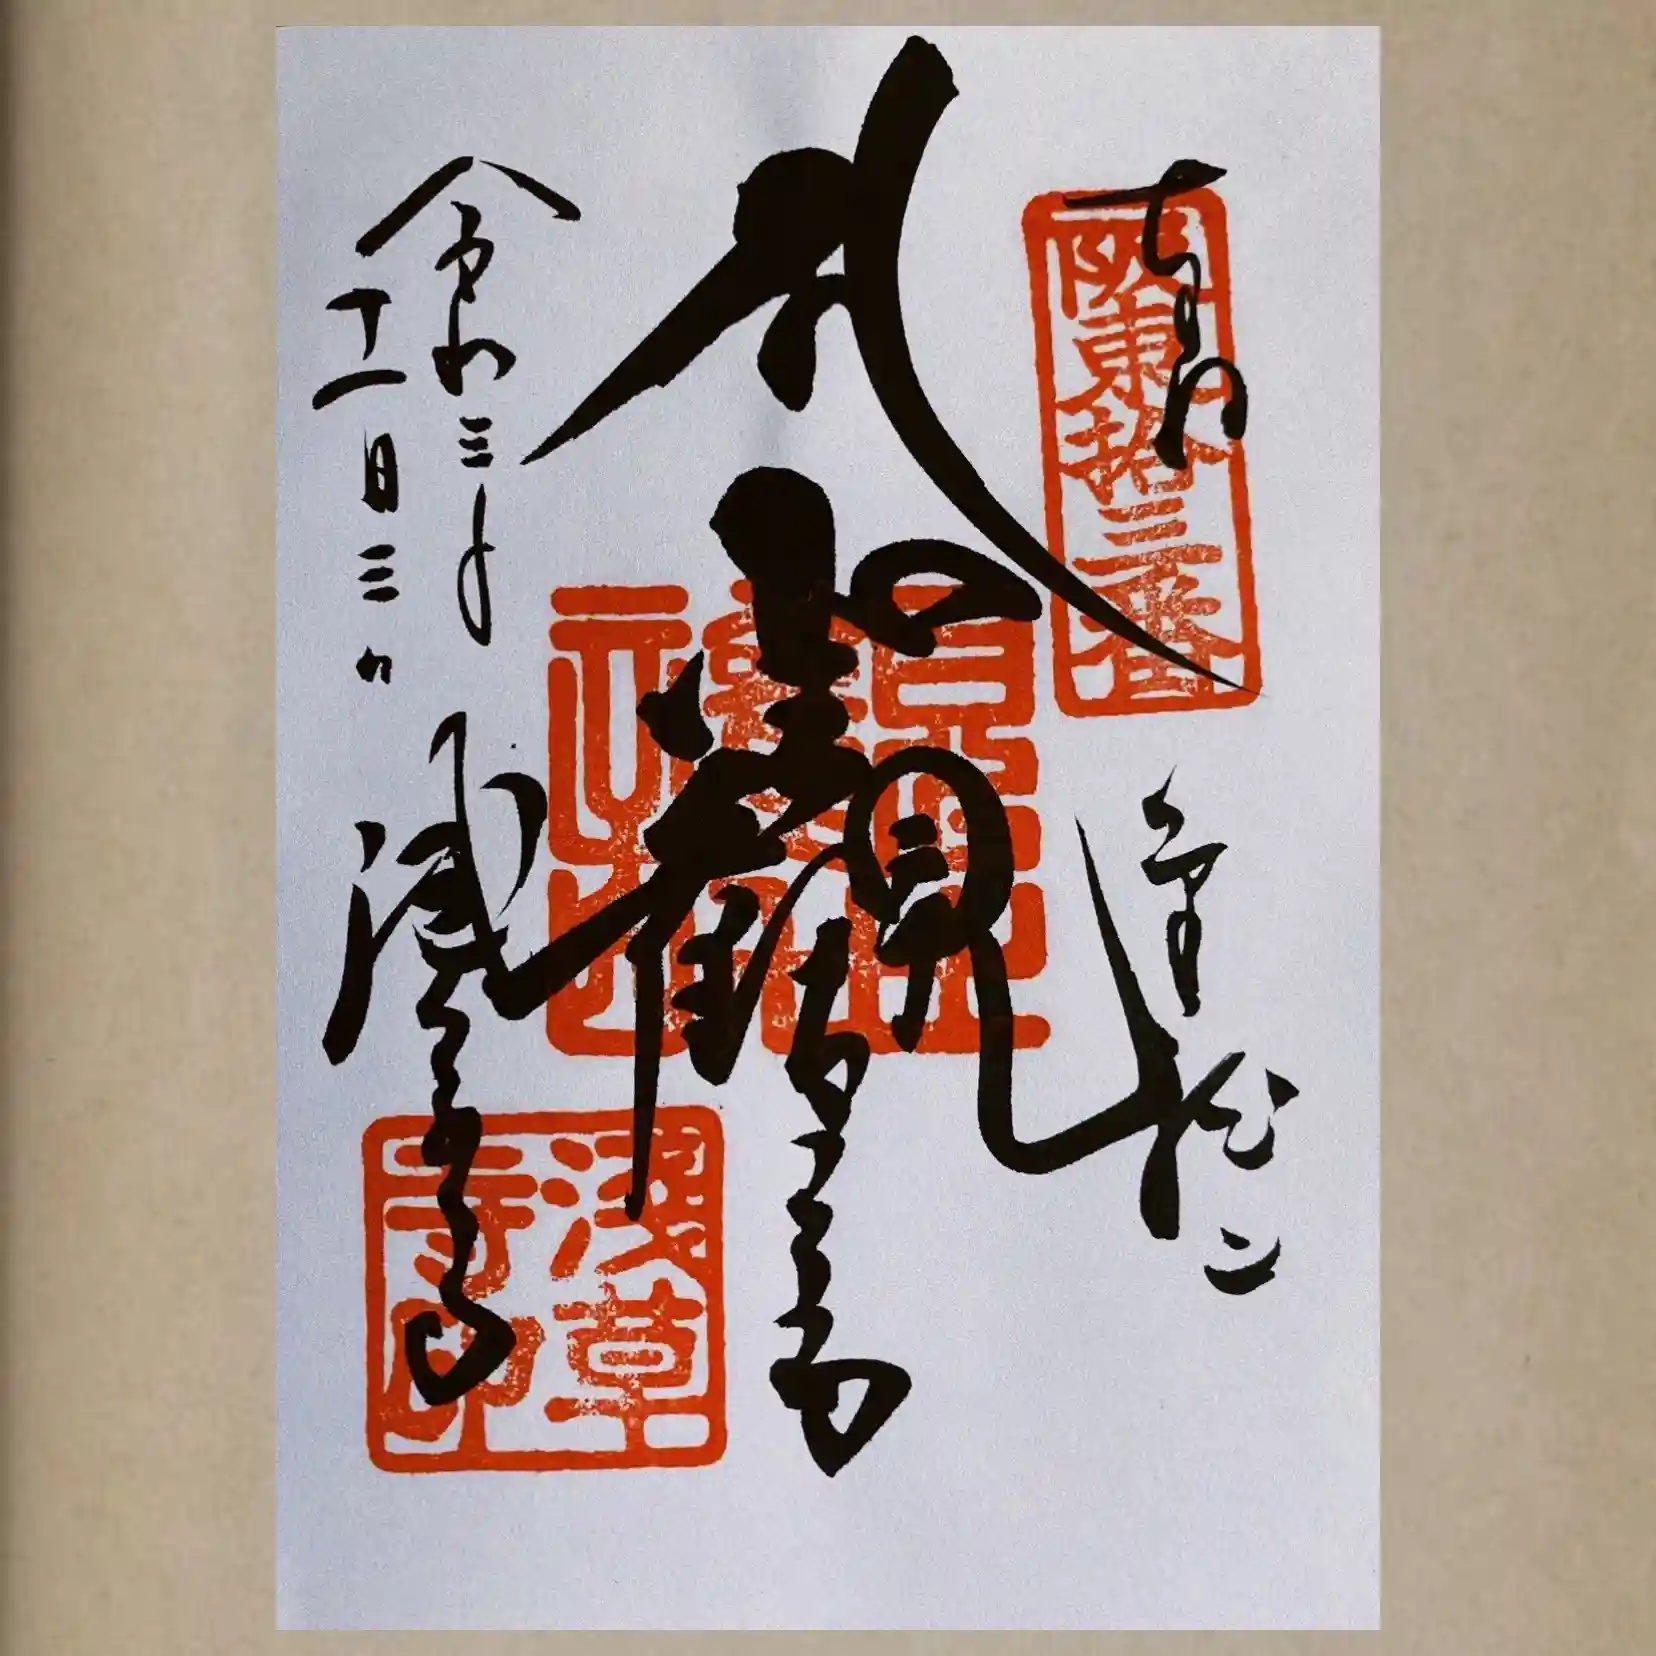 奉拝
阪東拾三番
金龍山
聖観世音
令和三年
十一月三日
浅草寺
淺草寺印